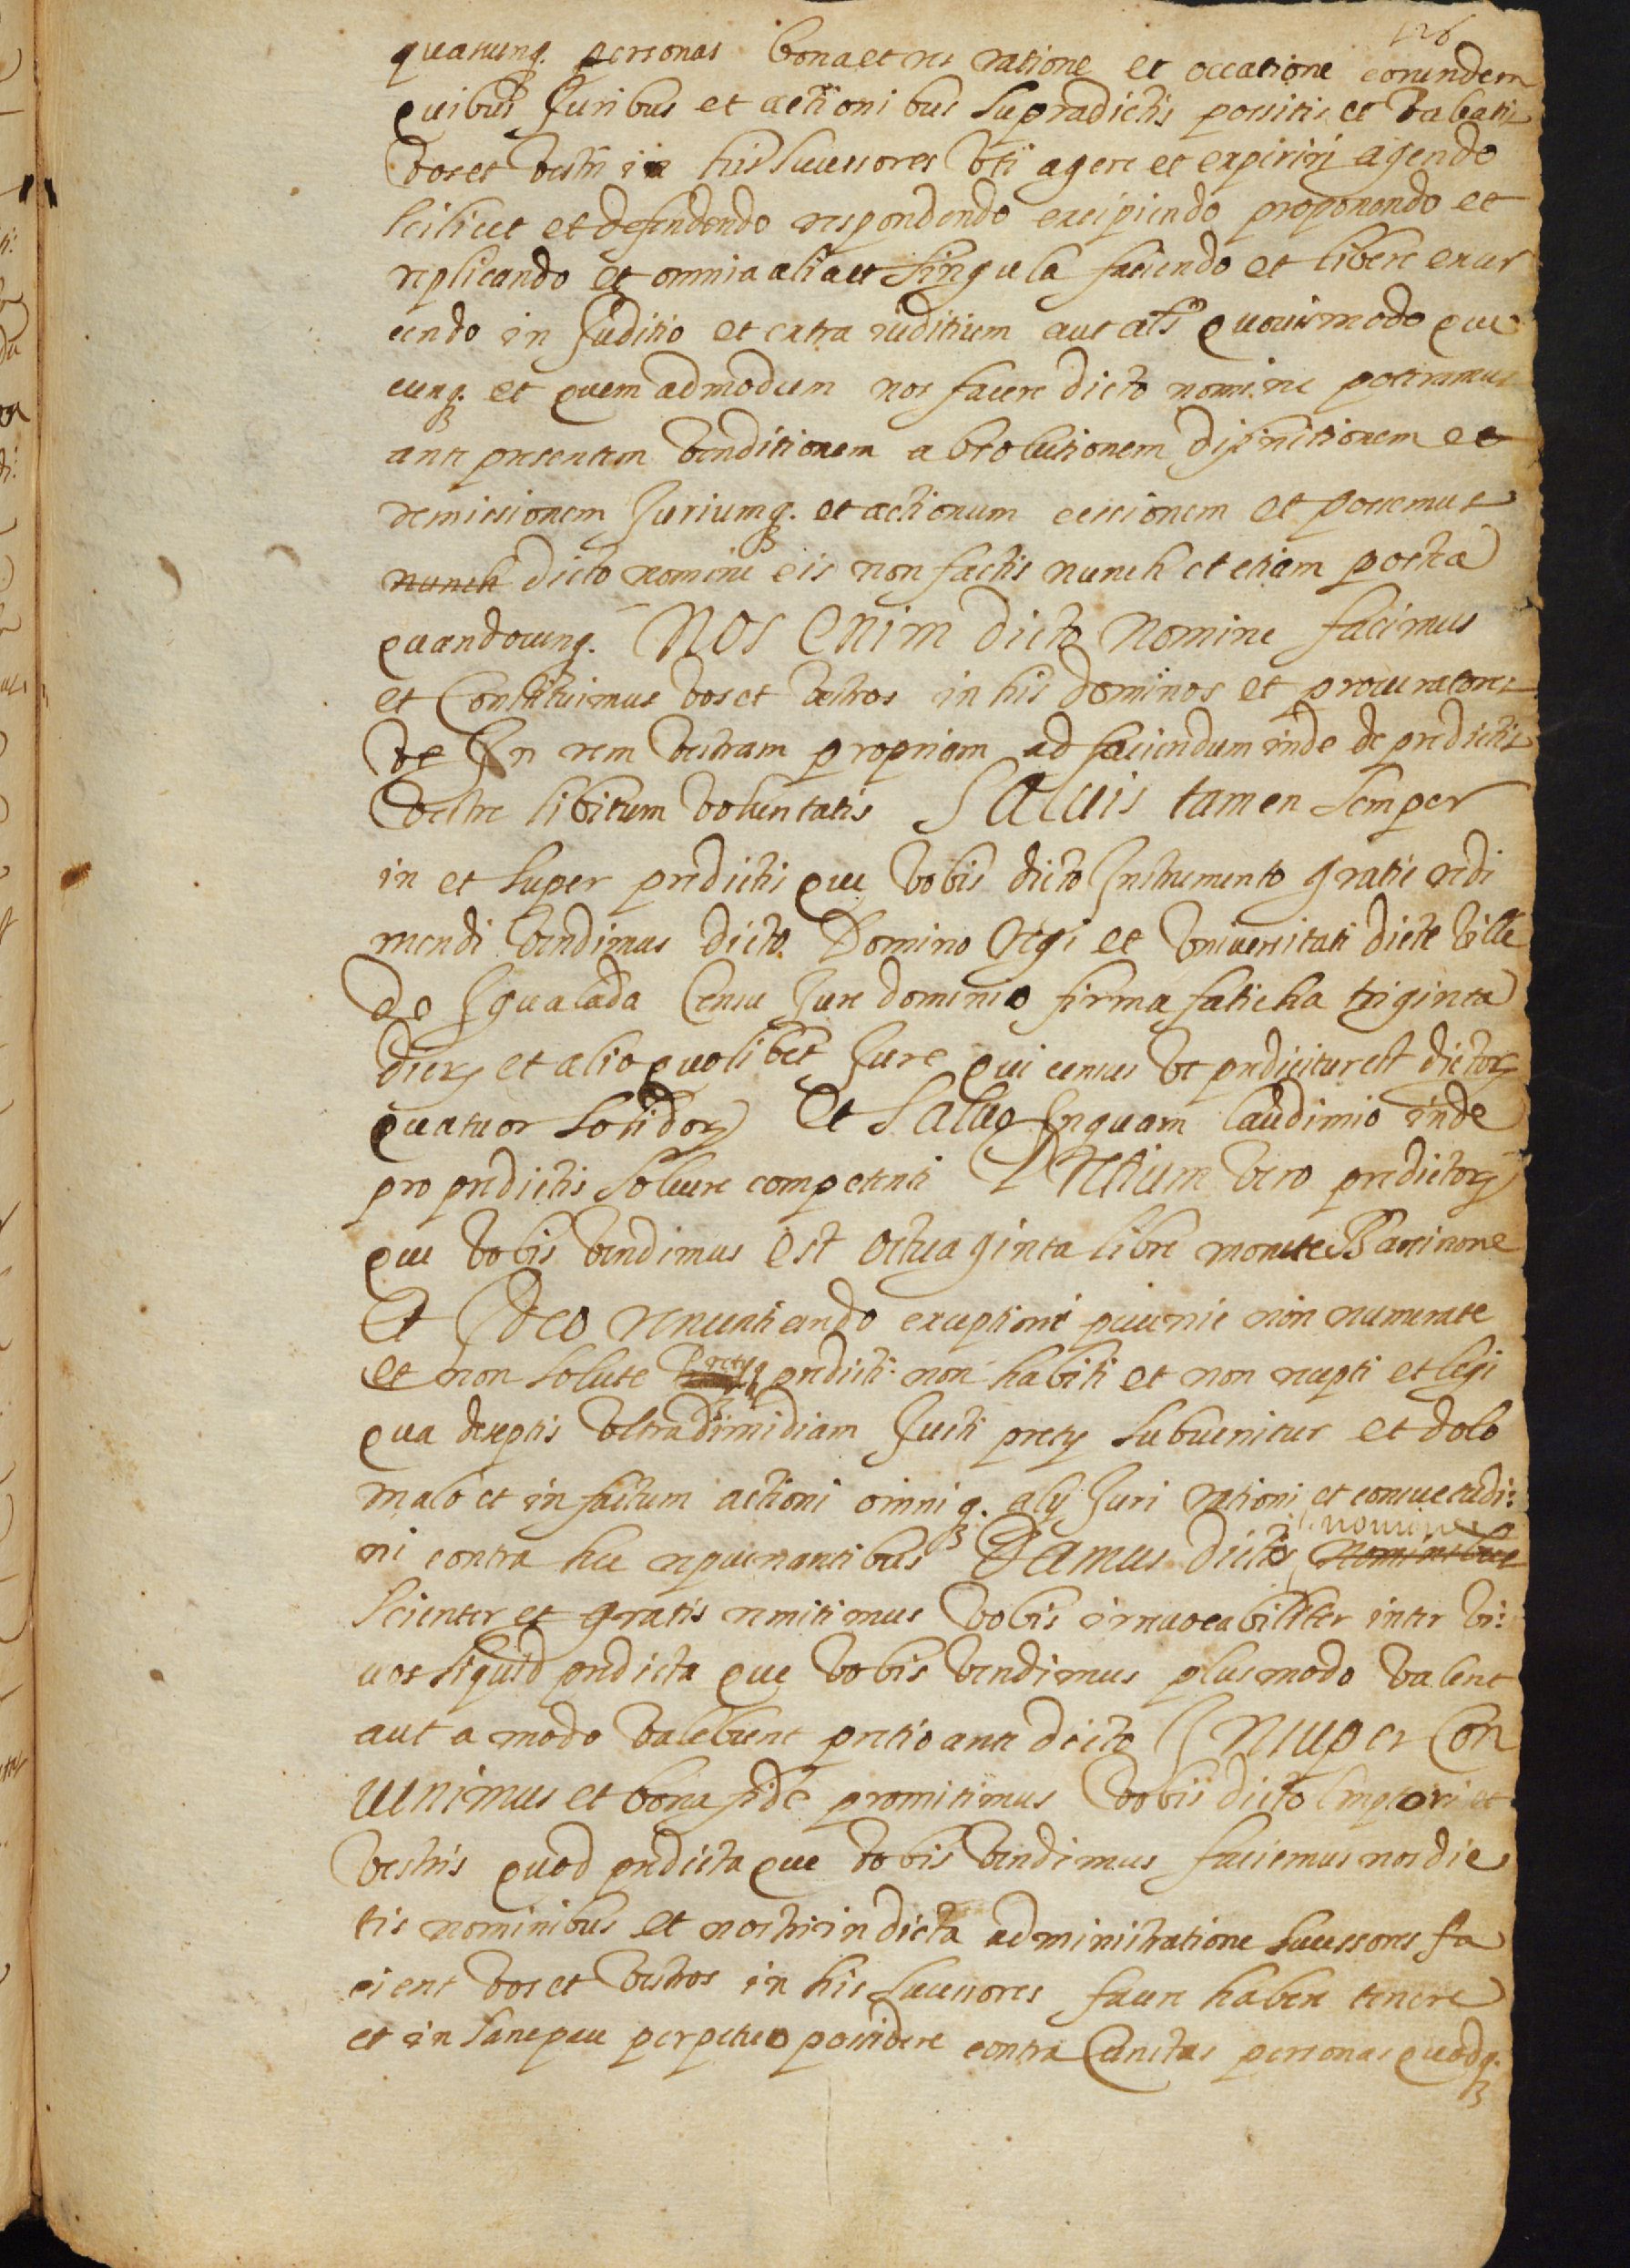 126
quasuung. personas bona et res ratione et occatione eorundem
quibus Juribus et actionibus supradictis possitis et valeatis
vos et vestri in his successores Uti agere et expiriri agendo
scilicet et defendendo respondendo excipiendo proponendo et
replicando et omnia alia et singula faciendo et libere exer
cendo in Juditio et extra iuditium aut als quouismodo que
cunq. et quem admodum nos facere dicto nomine poteramus
ante presentem venditionem absolutionem difinitionem et
remissionem Juriumq. et actionum cessionem et possemus
nunch dicto nomine eis non factis nunch et etiam postea
quandocunq. Nos enim dicto nomine facimus
et Constituimus vos et vestros in his dominos et procuratores
Ut In rem vestram propriam ad faciendum inde de predictis
vestre libitum voluntatis Saluis tamen semper
in et super predictis que vobis dicto Instrumento gratie redi
mendi vendimus dicto Domino Regi et Universitati dicte ville
de Igualada Censu Jure dominio firma faticha triginta
dierz et alio quolibet Jure qui census Ut predicitur est dictorz
quatuor solidorz Et Saluo Inquam laudimio inde
pro predictis soluere competenti Pretium vero predictorz
que vobis vendimus est octuaginta libre monete Barcinone
Et Ideo renuntiando exceptioni peccunie non numerate
et non solute Pretyq predicti non habiti et non recepti et legi
qua deseptis Ultra dimidiam Justi prety subuenitur et dolo
malo et in factum actioni omniq. aly Juri rationi et consuetudi:
ni contra hec repugnantibus Damus dicto nomine nominibus
Scienter et gratis remitimus vobis irreuocabiliter inter vi:
uos siquid predicta que vobis vendimus plus modo valent
aut a modo valebunt pretio ante dicto Insuper Con
uenimus et bona fide promitimus vobis dicto Emptori et
vestris quod predicta que vobis vendimus faciemus nos dic
tis nominibus et nostri in dicta administratione successores fa
cient vos et vestros in his successores facere habere tenere
et in sane pace perpetuo possidere contra Cunctas personas quodq.